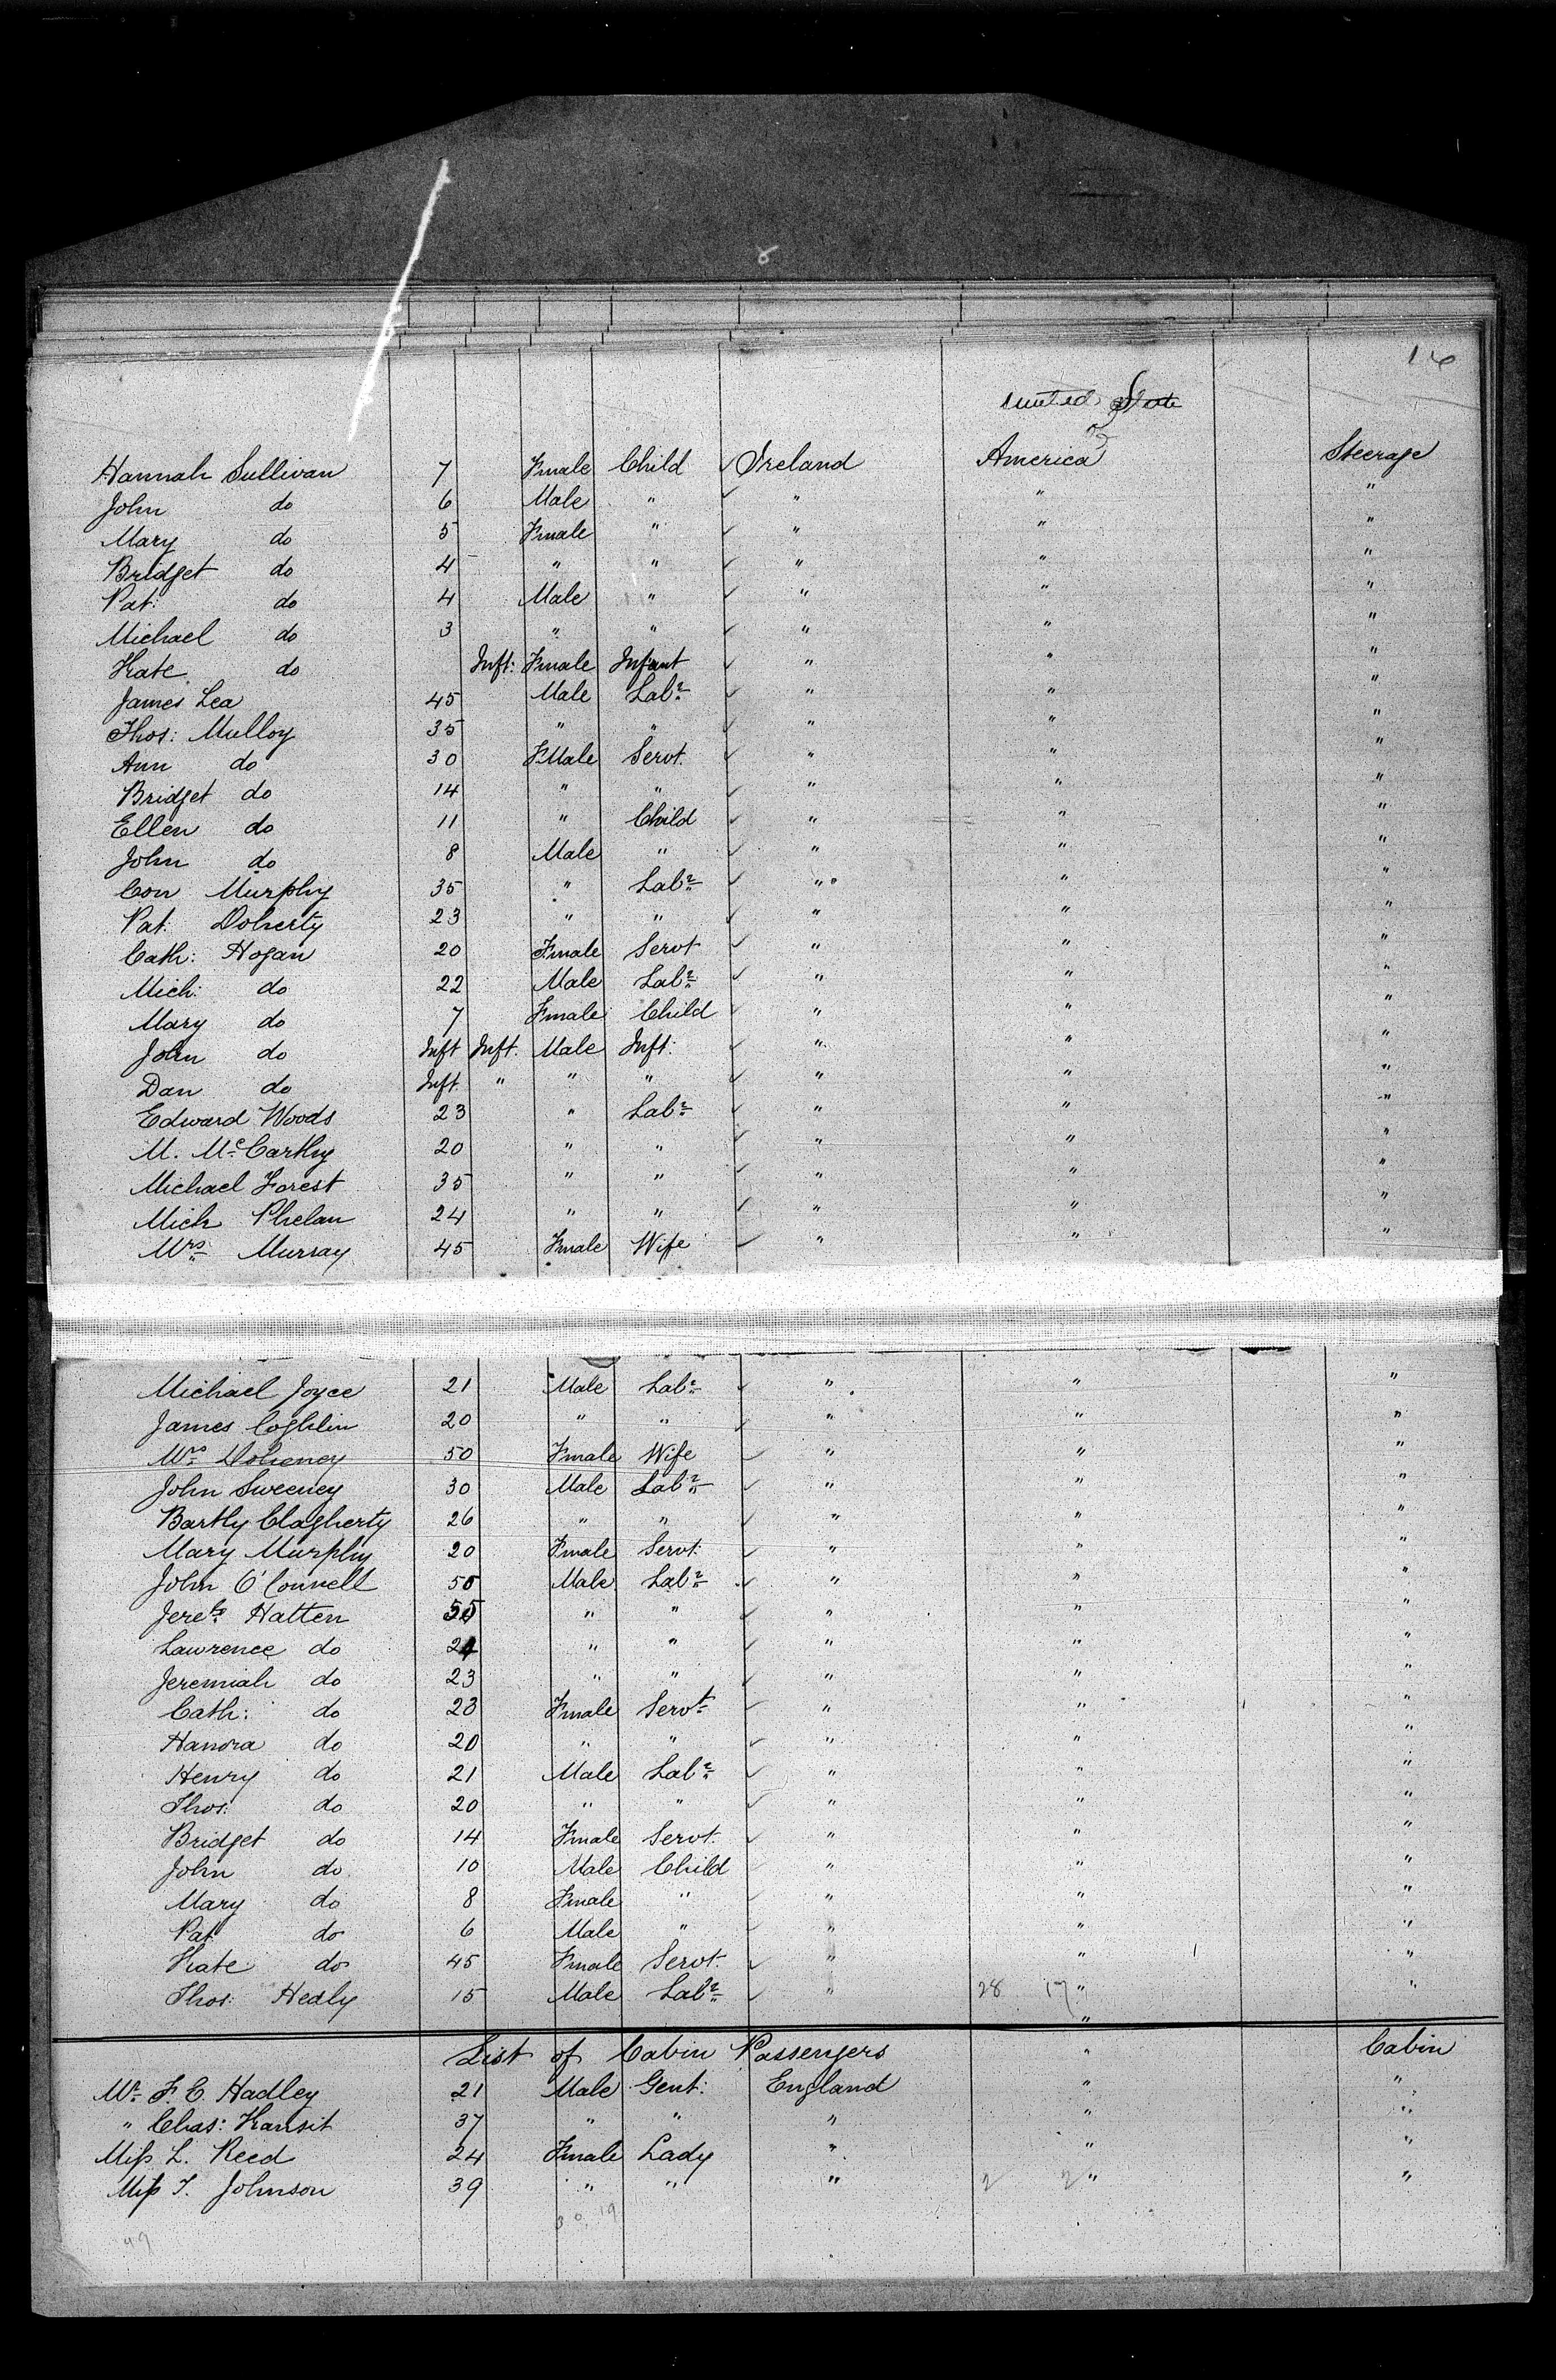 8
16
United State
of
Hannah Sullivan 7 Fmale Child ✓ Ireland America Steerage
John do 6 Male " ✓ " " "
Mary do 5 Fmale " ✓ " " "
Bridget do 4 " " ✓ " " "
Pat: do 4 Male " ✓ " " "
Michael do 3 " " ✓ " " "
Kate do Inft: Fmale Infant ✓ " " "
James Lea 45 Male Labr ✓ " " "
Thos: Mulloy 35 " " ✓ " " "
Ann do 30 FMale Servt. ✓ " " "
Bridget do 14 " " ✓ " " "
Ellen do 11 " Child ✓ " " "
John do 8 Male " ✓ " " "
Con Murphy 35 " Labr ✓ " " "
Pat: Doherty 23 " " ✓ " " "
Cath: Hogan 20 Fmale Servt ✓ " " "
Mich: do 22 Male Labr ✓ " " "
Mary do 7 Fmale Child ✓ " " "
John do Inft Inft. Male Inft: ✓ " " "
Dan do Inft. " " " ✓ " " "
Edward Woods 23 " Labr ✓ " " "
M. McCarthy 20 " " ✓ " " "
Michael Forest 35 " " ✓ " " "
Mich Phelan 24 " " ✓ " " "
Mrs Murray 45 Fmale Wife ✓ " " "
Michael Joyce 21 Male Labr ✓ " " "
James Coghlin 20 " " ✓ " " "
Mrs Doheney 50 Fmale Wife ✓ " " "
John Sweeney 30 Male Labr ✓ " " "
Bartly Clagherty 26 " " ✓ " " "
Mary Murphy 20 Fmale Servt: ✓ " " "
John O'Connell 50 Male Labr ✓ " " "
Jereh Hatten 55 " " ✓ " " "
Lawrence do 24 " " ✓ " " "
Jeremiah do 23 " " ✓ " " "
Cath: do 23 Fmale Servt ✓ " " "
Hanora do 20 " " ✓ " " "
Henry do 21 Male Labr ✓ " " "
Thos: do 20 " " ✓ " " "
Bridget do 14 Fmale Servt. ✓ " " "
John do 10 Male Child ✓ " " "
Mary do 8 Fmale " ✓ " " "
Pat do 6 Male " ✓ " " "
Kate do 45 Fmale Servt. ✓ " " "
Thos: Hedly 15 Male Labr ✓ " 28 17 " "
"
List of Cabin Passengers " Cabin
Mr F. C. Hadley 21 Male Gent: England " "
" Chas: Kansit 37 " " " " "
Miss L. Reed 24 Fmale Lady " " "
Miss T. Johnson 39 " " " 2 2 " "
30 19
49